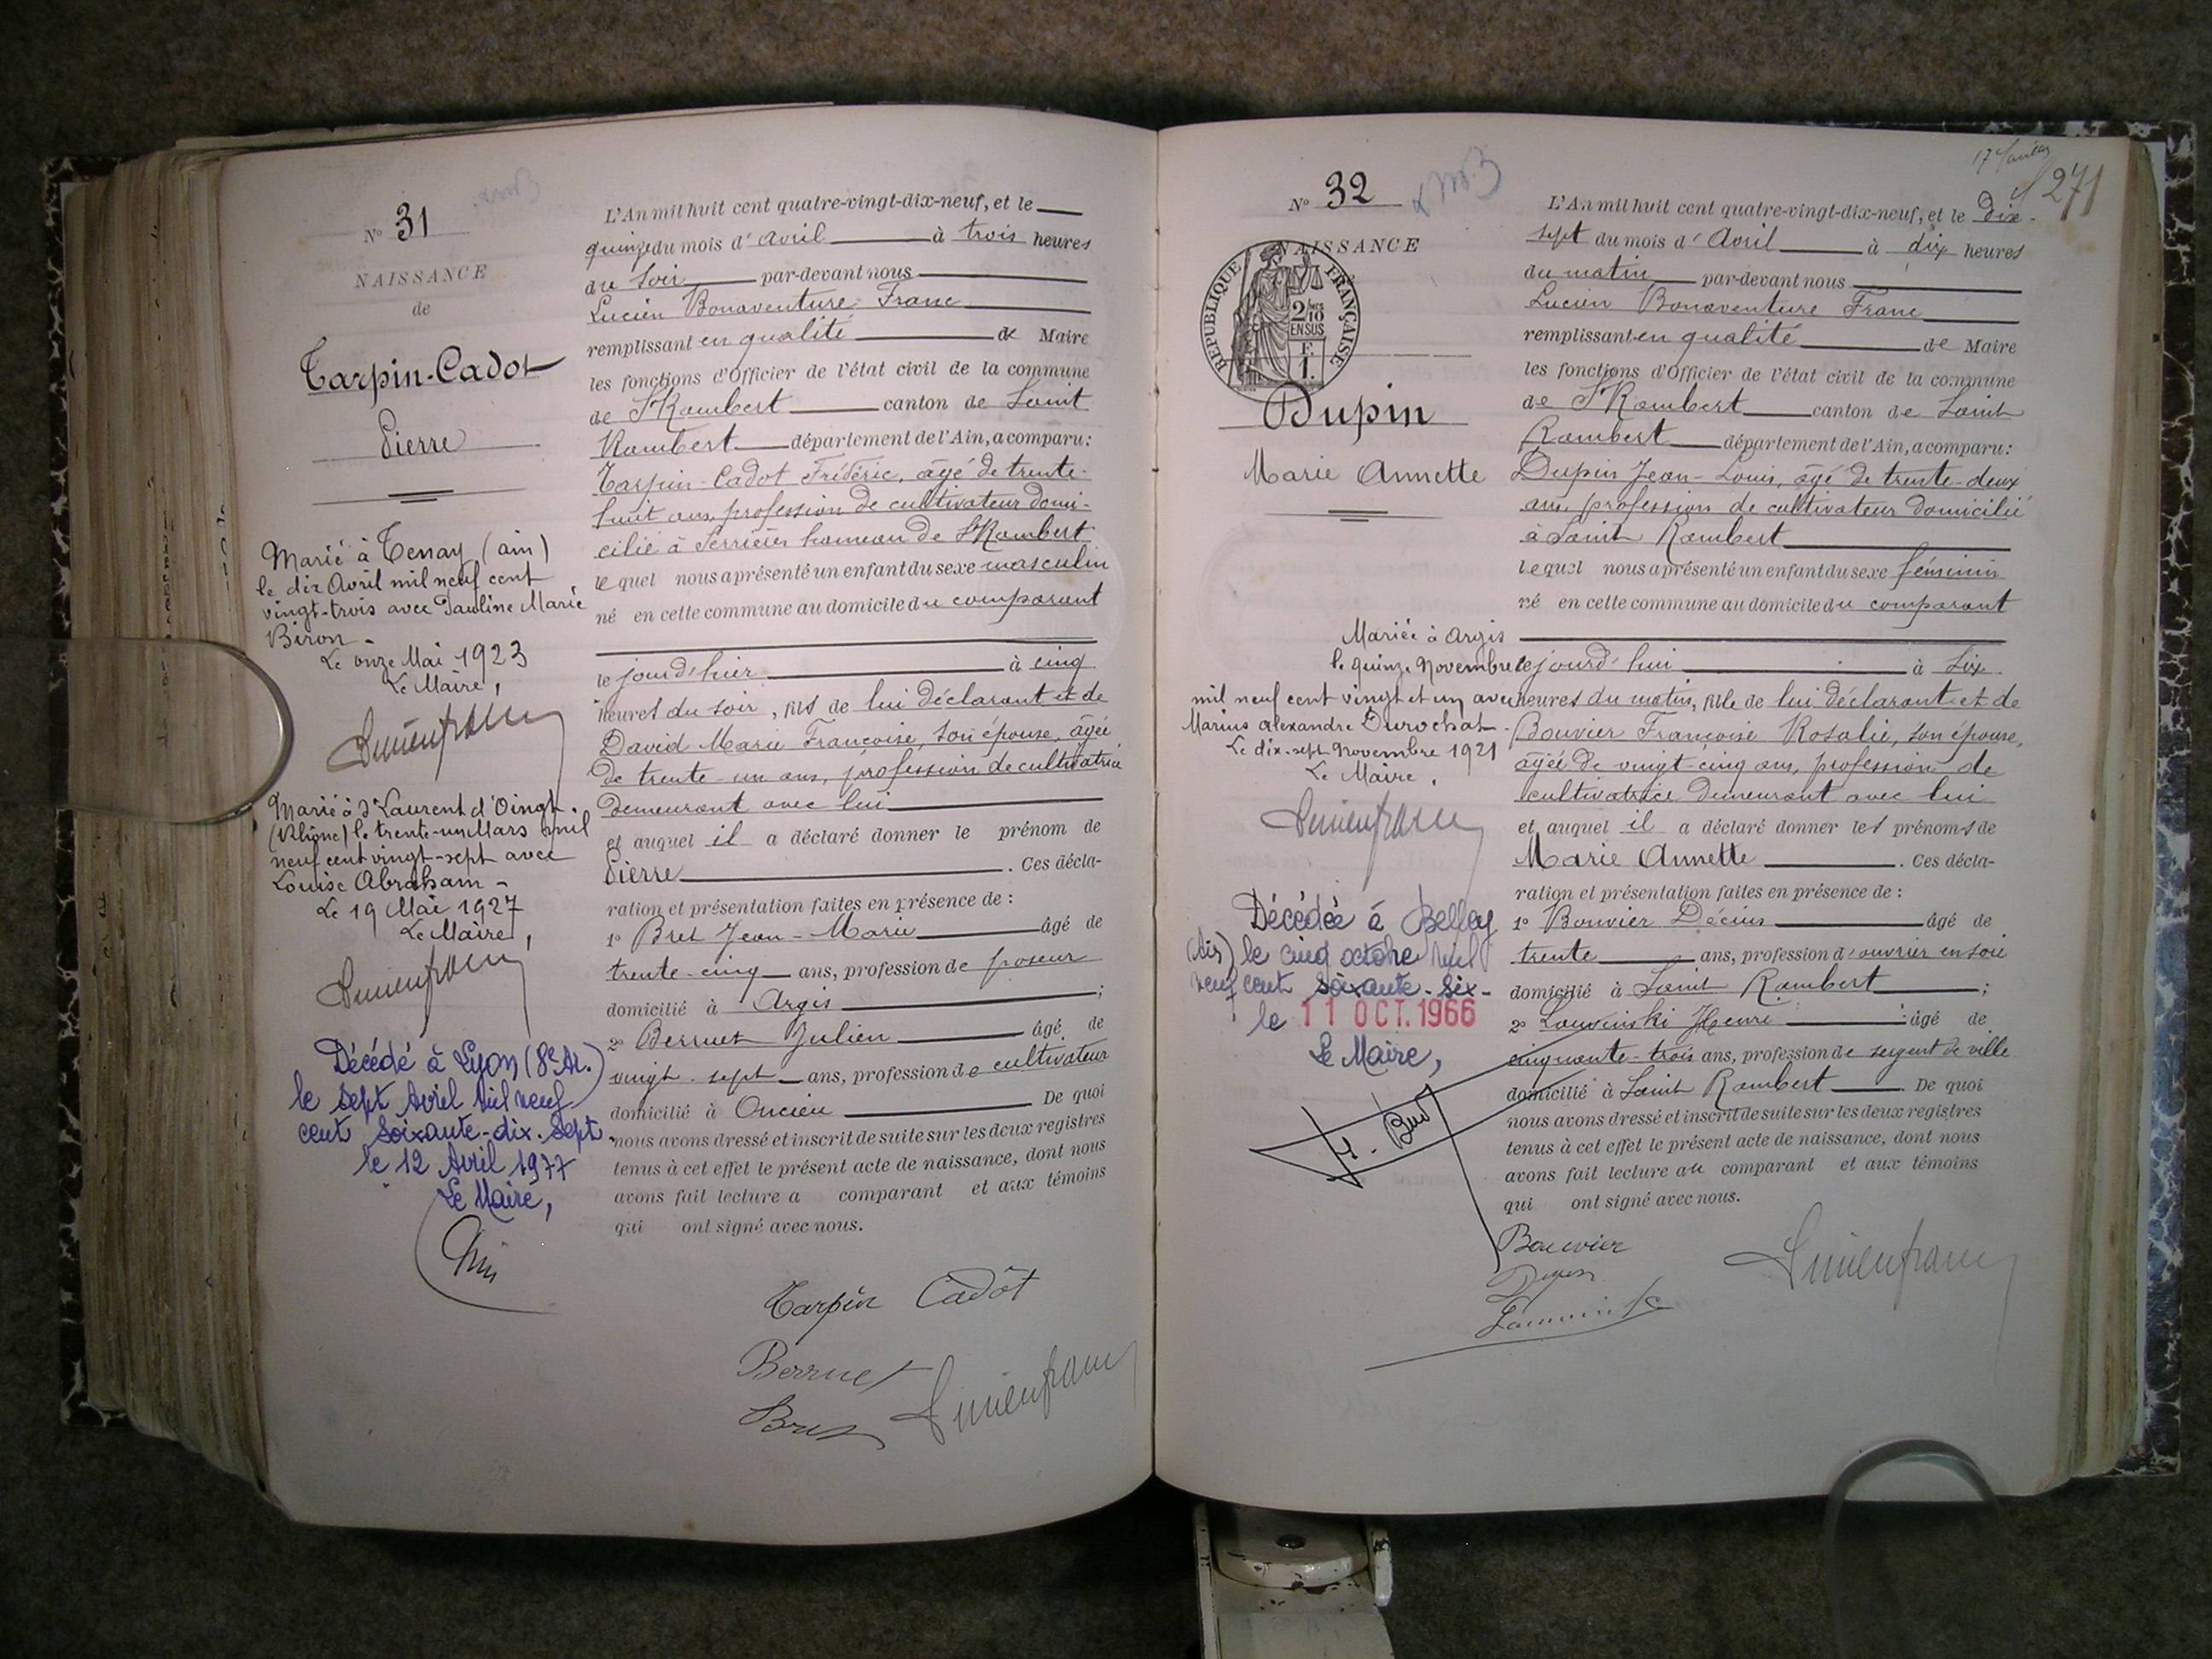 N° 31
NAISSANCE
de
Tarpin-Cadot
Pierre
Marié à Tenay (ain)
le dix Avril mil neuf cent
vingt-trois avec Pauline Marie
Biron -
Le onze Mai 1923
Le Maire,
Lucien franc
Marié à St Laurent d'Oingt.
(Rhône) le trente-un Mars mil
neuf cent vingt-sept avec
Louise Abraham -
Le 19 Mai 1927
Le Maire,
Lucien franc
Décédé à Lyon (8e Ar.)
le sept Avril mil neuf
cent soixante-dix-sept
le 12 Avril 1977
Le Maire,
L'An mil huit cent quatre-vingt-dix-neuf, et le
quinze du mois d'avril à trois heures
du soir par-devant nous
Lucien Bonaventure Franc
remplissant en qualité de Maire
les fonctions d'Officier de l'état civil de la commune
de St Rambert canton de Saint
Rambert département de l'Ain, a comparu:
Tarpin-Cadot Frédéric, âgé de trente-
huit ans, profession de cultivateur domi-
cilié à Serrières hameau de St Rambert
lequel nous a présenté un enfant du sexe masculin
né en cette commune au domicile du comparant
le jour d'hier à cinq
heures du soir, fils de lui déclarant et de
David Marie Françoise, son épouse, âgée
de trente-un ans, profession de cultivatrice
demeurant avec lui
et auquel il a déclaré donner le prénom de
Pierre. Ces décla-
ration et présentation faites en présence de :
1° Bret Jean-Marie âgé de
trente-cinq ans, profession de poseur
domicilié à Argis ;
2° Berruet Julien âgé de
vingt-sept ans, profession de cultivateur
domicilié à Oncieu De quoi
nous avons dressé et inscrit de suite sur les deux registres
tenus à cet effet le présent acte de naissance, dont nous
avons fait lecture a comparant et aux témoins
qui ont signé avec nous.
Tarpin Cadôt
Berruet
Bret Lucien franc
271
N° 32
NAISSANCE
REPUBLIQUE FRANÇAISE
2/10
EN SUS
F.
1.
Dupin
Marie Annette
Mariée à Argis
le quinze Novembre
mil neuf cent vingt et un avec
Marius Alexandre Durochat -
Le dix-sept Novembre 1921
Le Maire,
Lucien franc
Décédée à Belley
(Ain) le cinq octobre mil
neuf cent soixante-six-
le 11 OCT. 1966
Le Maire,
L'An mil huit cent quatre-vingt-dix-neuf, et le dix-
sept du mois d'Avril à dix heures
du matin par-devant nous
Lucien Bonaventure Franc
remplissant en qualité de Maire
les fonctions d'Officier de l'état civil de la commune
de St Rambert canton de Saint
Rambert département de l'Ain, a comparu:
Dupin Jean-Louis, âgé de trente-deux
ans, profession de cultivateur domicilié
à Saint Rambert
lequel nous a présenté un enfant du sexe féminin
né en cette commune au domicile du comparant
cejourd'hui à six
heures du matin, fille de lui déclarant et de
Bouvier Françoise Rosalie, son épouse,
âgée de vingt-cinq ans, profession de
cultivatrice demeurant avec lui
et auquel il a déclaré donner les prénoms de
Marie Annette. Ces décla-
ration et présentation faites en présence de :
1° Bouvier Décius âgé de
trente ans, profession d'ouvrier en soie
domicilié à Saint Rambert ;
2° Louvinski Henri âgé de
cinquante-trois ans, profession de sergent de ville
domicilié à Saint Rambert De quoi
nous avons dressé et inscrit de suite sur les deux registres
tenus à cet effet le présent acte de naissance, dont nous
avons fait lecture au comparant et aux témoins
qui ont signé avec nous.
Bouvier
Lucien franc